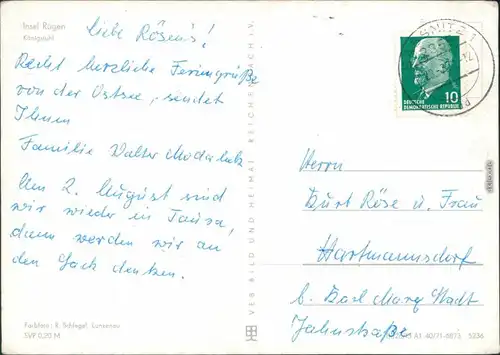 Insel Rügen
Königstuhl
Liebe Rösens!
Recht herzliche Feriengrüße
von der Ostsee, sendet
Ihnen
Familie Walter
Am 2. August sind
wir wieder in Taura,
dann werden wir an
den Sack denken.
Farbfoto: R. Schlegel, Lunzenau
SVP 0,20 M
VEB BILD UND HEIMAT REICHENBACH i. V.
SNITZ 1
10
DEUTSCHE
DEMOKRATISCHE REPUBLIK
Herrn
Kurt Röse u. Frau
Hartmannsdorf
b. Karl Marx Stadt
Jahnstraße